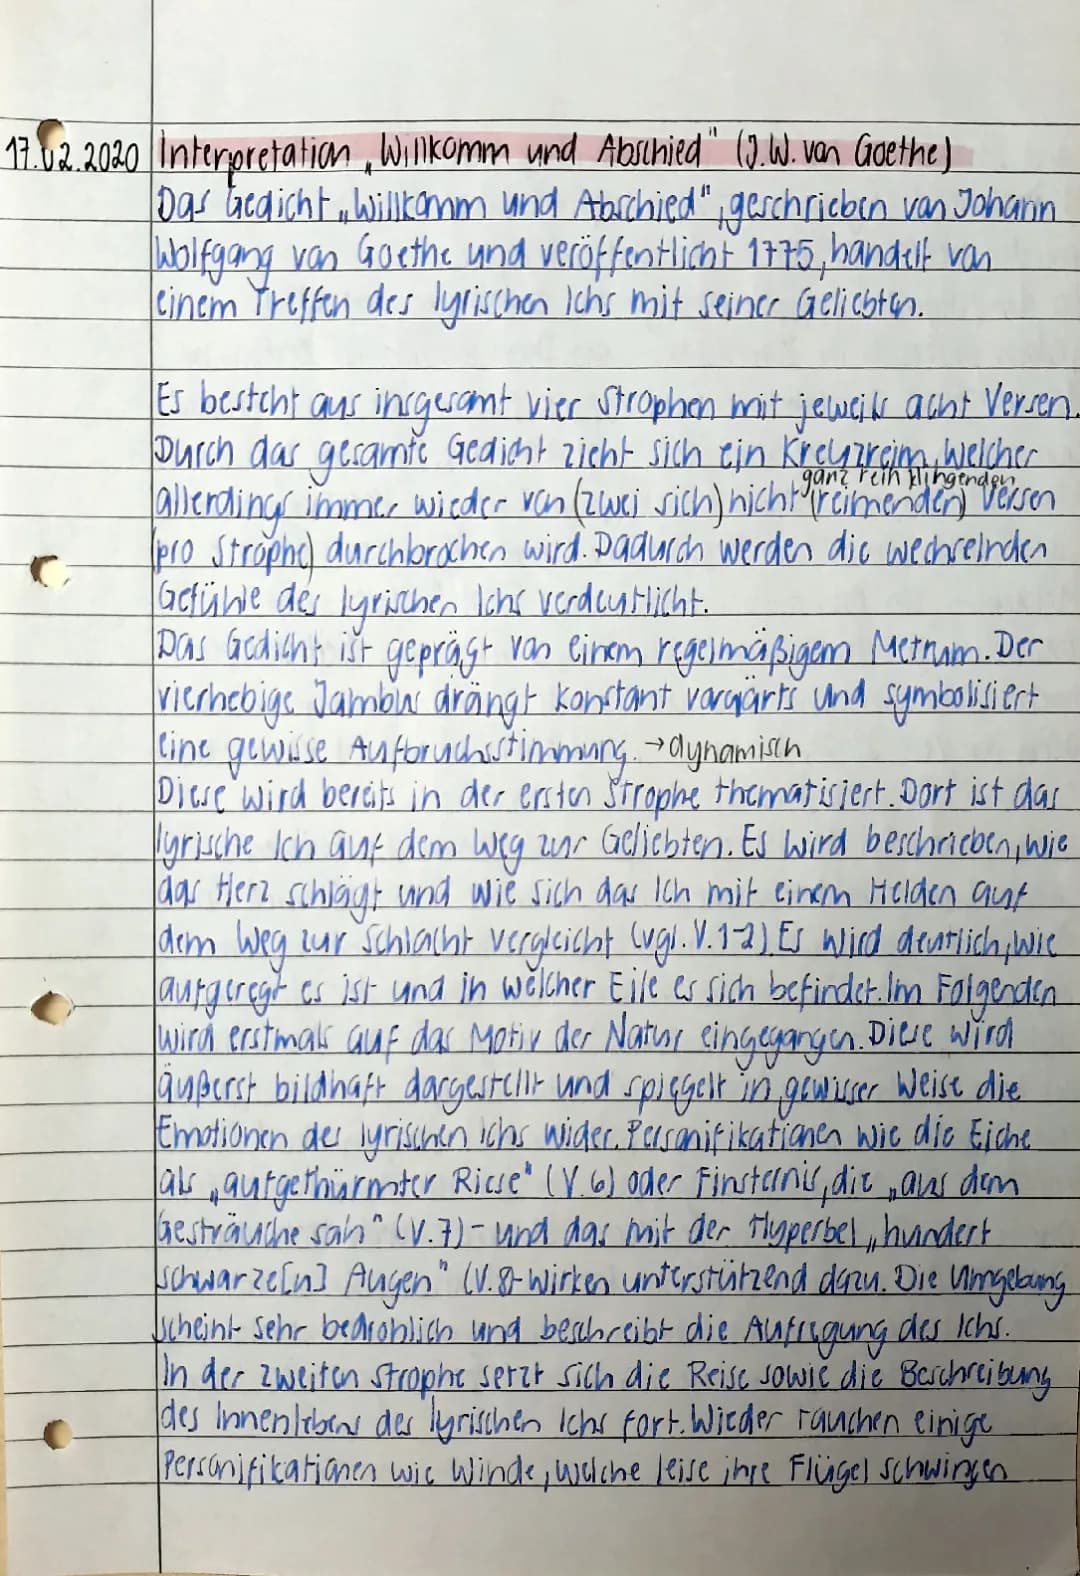 17.02.2020 Interpretation „Willkomm und Abschied" (J.W. von Goethe)
Das Gedicht „Willkomm und Abschied", geschrieben von Johann
Wolfgang von Goethe und veröffentlicht 1775, handelt von
einem Treffen des lyrischen Ichs mit seiner Geliebten.
Es besteht aus insgesamt vier Strophen mit jeweils acht Versen.
Durch das gesamte Gedicht zieht sich ein Kreuzreim, welcher
ganz rein klingenden
allerdings immer wieder von (zwei sich) nicht (reimenden) Versen
(pro Strophe) durchbrochen wird. Dadurch werden die wechselnden
Gefühle des lyrischen Ichs verdeutlicht.
Das Gedicht ist geprägt von einem regelmäßigem Metrum. Der
vierhebige Jambus drängt konstant vorwärts und symbolisiert
eine gewisse Aufbruchsstimmung. → dynamisch
Diese wird bereits in der ersten Strophe thematisiert. Dort ist das
lyrische Ich auf dem Weg zur Geliebten. Es wird beschrieben, wie
das Herz schlägt und wie sich das Ich mit einem Helden auf
dem Weg zur Schlacht vergleicht (vgl. V. 1-2). Es wird deutlich, wie
aufgeregt es ist und in welcher Eile es sich befindet. Im Folgenden
wird erstmals auf das Motiv der Natur eingegangen. Diese wird
äußerst bildhaft dargestellt und spiegelt in gewisser Weise die
Emotionen des lyrischen Ichs wider. Personifikationen wie die Eiche
als „aufgethürmter Riese" (V. 6) oder Finsternis, die „aus dem
Gesträuche sah" (V. 7) - und das mit der Hyperbel „hundert
schwarze[n] Augen" (V. 8) - wirken unterstützend dazu. Die Umgebung
scheint sehr bedrohlich und beschreibt die Aufregung des Ichs.
In der zweiten Strophe setzt sich die Reise sowie die Beschreibung
des Innenlebens des lyrischen Ichs fort. Wieder tauchen einige
Personifikationen wie Winde, welche leise ihre Flügel schwingen